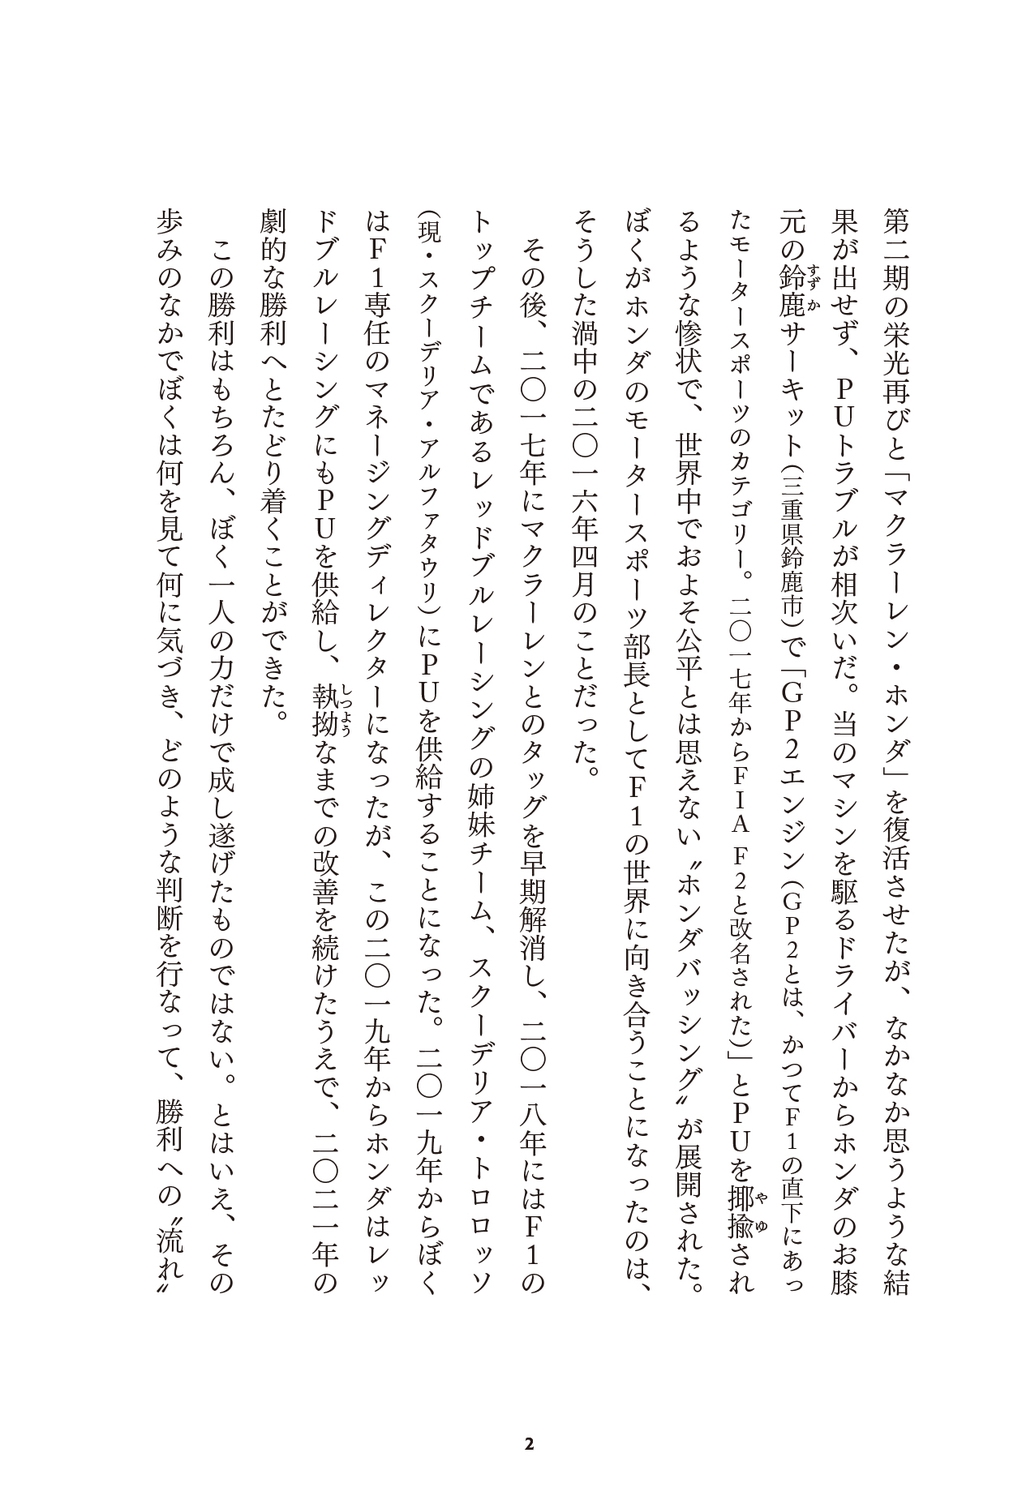 第二期の栄光再びと「マクラーレン・ホンダ」を復活させたが、なかなか思うような結
果が出せず、PUトラブルが相次いだ。当のマシンを駆るドライバーからホンダのお膝
元の鈴鹿サーキット(三重県鈴鹿市)で「GP2エンジン(GP2とは、かつてF1の直下にあっ
たモータースポーツのカテゴリー。二〇一七年からFIA F2と改名された)」とPUを揶揄され
るような惨状で、世界中でおよそ公平とは思えない〝ホンダバッシング〟が展開された。
ぼくがホンダのモータースポーツ部長としてF1の世界に向き合うことになったのは、
そうした渦中の二〇一六年四月のことだった。
その後、二〇一七年にマクラーレンとのタッグを早期解消し、二〇一八年にはF1の
トップチームであるレッドブルレーシングの姉妹チーム、スクーデリア・トロロッソ
(現・スクーデリア・アルファタウリ)にPUを供給することになった。二〇一九年からぼく
はF1専任のマネージングディレクターになったが、この二〇一九年からホンダはレッ
ドブルレーシングにもPUを供給し、執拗なまでの改善を続けたうえで、二〇二一年の
劇的な勝利へとたどり着くことができた。
この勝利はもちろん、ぼく一人の力だけで成し遂げたものではない。とはいえ、その
歩みのなかでぼくは何を見て何に気づき、どのような判断を行なって、勝利への〝流れ〟
すずか
やゆ
しつよう
2